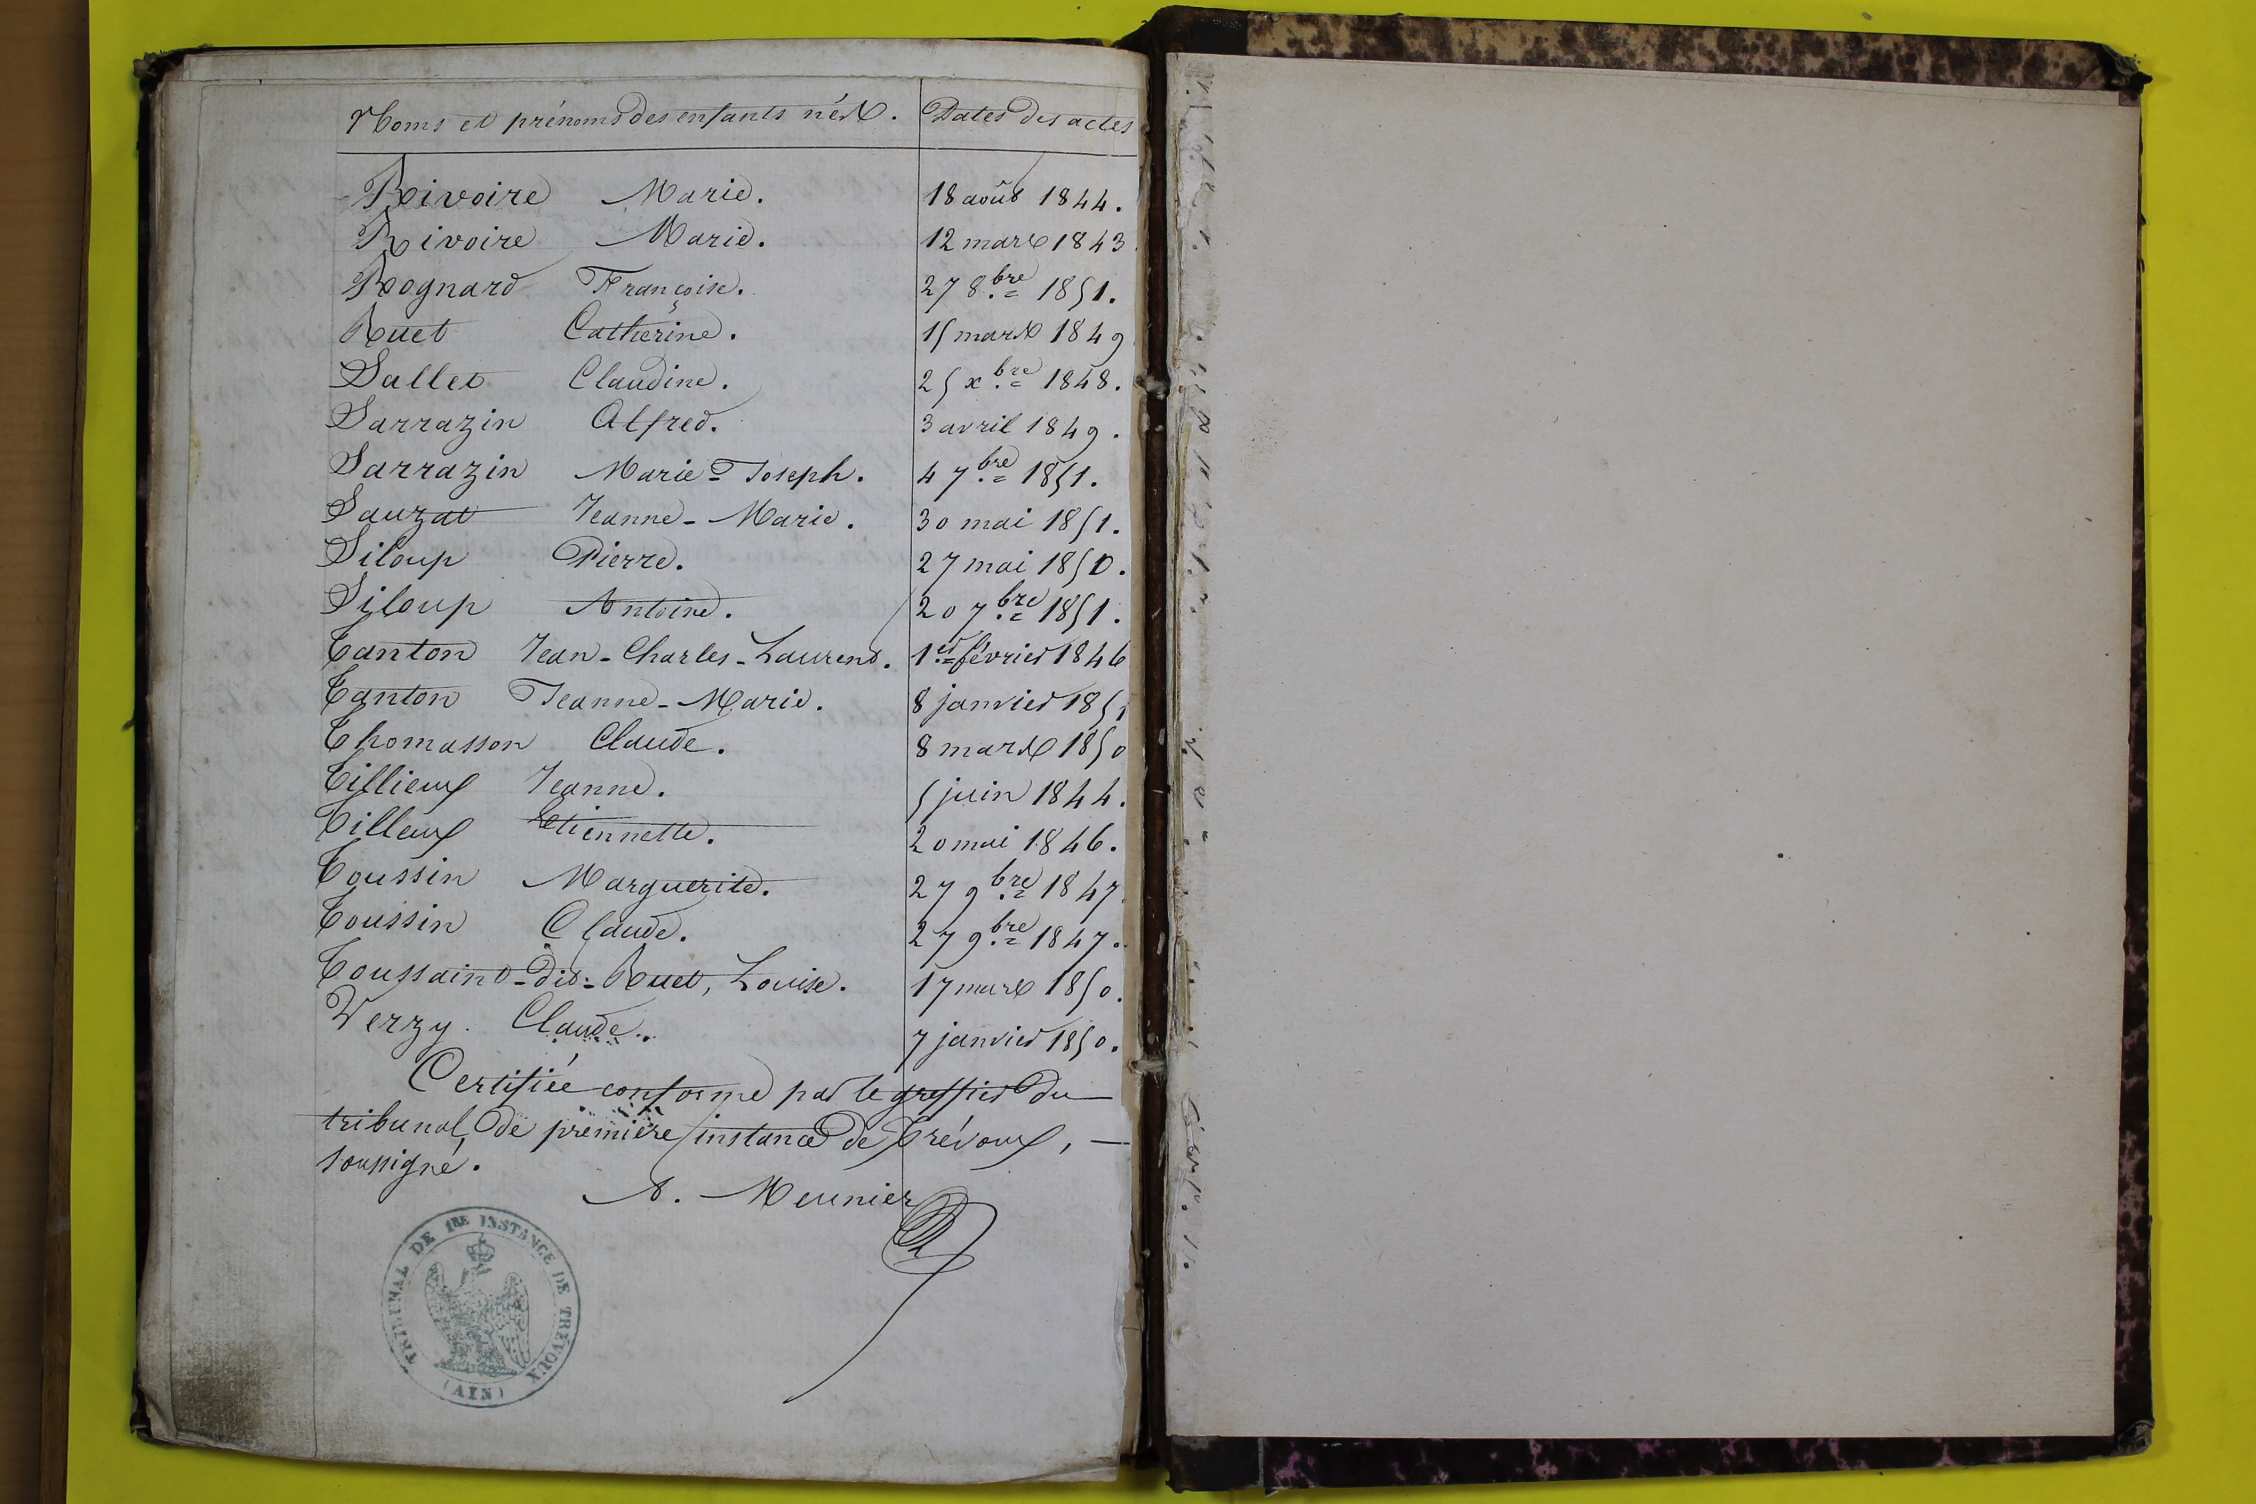 Noms et prénoms des enfants nés. Dates des actes
Rivoire Marie. 18 août 1844.
Rivoire Marie. 12 mars 1843
Rognard Françoise. 27 8.bre 1851.
Ruet Catherine. 15 mars 1849
Sallet Claudine. 25 x.bre 1848.
Sarrazin Alfred. 3 avril 1849.
Sarrazin Marie-Joseph. 4 7.bre 1851.
Sauzat Jeanne-Marie. 30 mai 1851.
Siloup Pierre. 27 mai 1850.
Siloup Antoine. 20 7.bre 1851.
Tanton Jean-Charles-Laurent. 1.er février 1846
Tanton Jeanne-Marie. 8 janvier 1851
Thomasson Claude. 8 mars 1850
Tillieux Jeanne. 5 juin 1844.
Tilleux Etiennette. 20 mai 1846.
Toussin Marguerite. 27 9.bre 1847.
Toussin Claude. 27 9.bre 1847.
Toussaint-dit-Ruet, Louise. 17 mars 1850.
Verzy. Claude. 7 janvier 1850.
Certifiée conforme par le greffier du
tribunal de première instance de Trévoux,
soussigné.
A. Meunier
TRIBUNAL DE 1RE INSTANCE DE TRÉVOUX
(AIN)